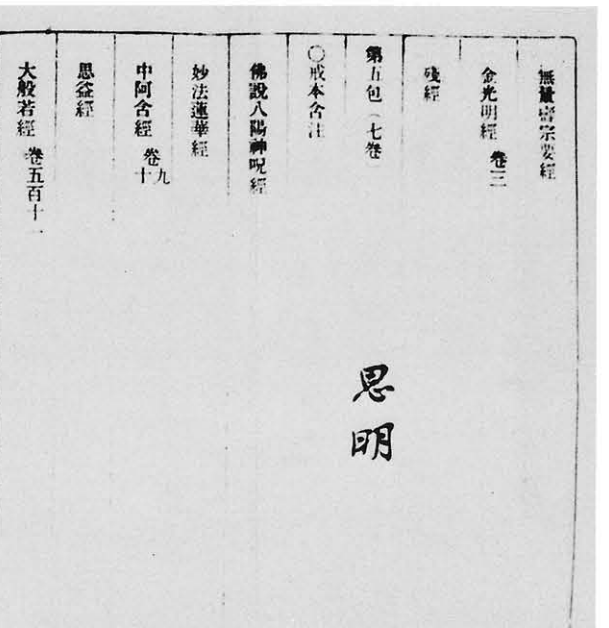 無量壽宗要經
金光明經 卷三
殘經
第五包(七卷)
〇戒本含注
佛說八陽神呪經
妙法蓮華經
中阿含經 卷九 十
思益經
大般若經 卷五百十一
思明